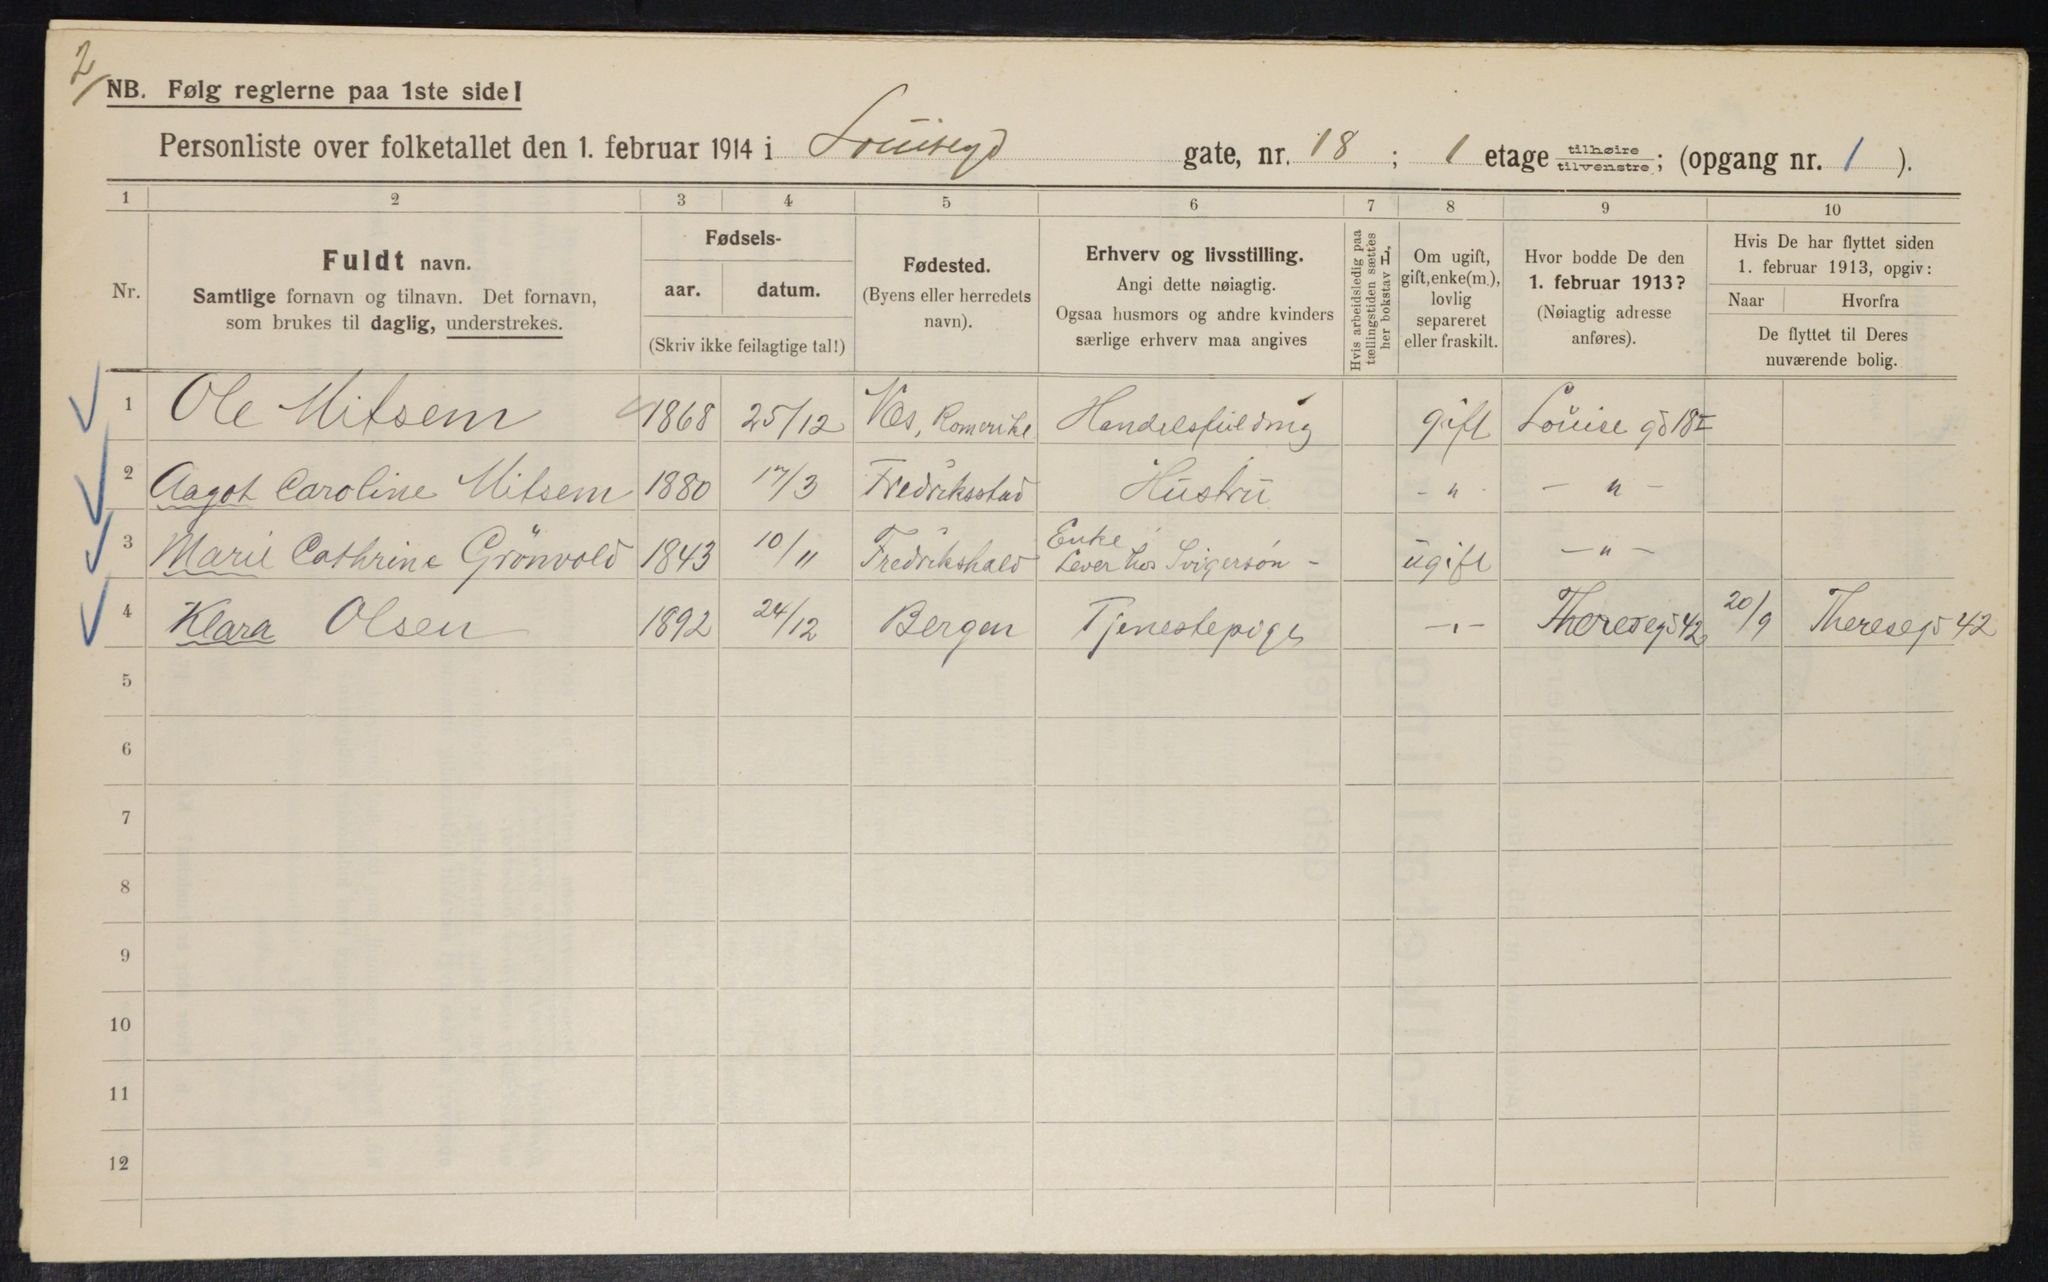 2/
NB. Følg reglerne paa 1ste side!
Personliste over folketallet den 1. februar 1914 i Louisegd gate, nr. 18 ; 1 etage tilhøire/tilvenstre; (opgang nr. 1 ).
1 2 3 4 5 6 7 8 9 10
Nr.
Fuldt navn.
Samtlige fornavn og tilnavn. Det fornavn,
som brukes til daglig, understrekes.
Fødsels-
aar. datum.
(Skriv ikke feilagtige tal!)
Fødested.
(Byens eller herredets
navn).
Erhverv og livsstilling.
Angi dette nøiagtig.
Ogsaa husmors og andre kvinders
særlige erhverv maa angives
Hvis arbeidsledig paa
tællingstiden sættes
her bokstav H,
Om ugift,
gift, enke(m.),
lovlig
separeret
eller fraskilt.
Hvor bodde De den
1. februar 1913?
(Nøiagtig adresse
anføres).
Hvis De har flyttet siden
1. februar 1913, opgiv:
Naar Hvorfra
De flyttet til Deres
nuværende bolig.
1 Ole Mitsem 1868 25/12 Næs, Romerike Handelsfuldmg gift Louise gd 18 I
2 Aagot Caroline Mitsem 1880 17/3 Fredriksstad Hustru - " - - " -
3 Marie Cathrine Grönvold 1843 10/11 Fredrikshald Enke Lever hos Svigersøn - ugift - " -
4 Klara Olsen 1892 24/12 Bergen Tjenestepige - " - Theresegd 42 20/9 Theresegd 42
5
6
7
8
9
10
11
12